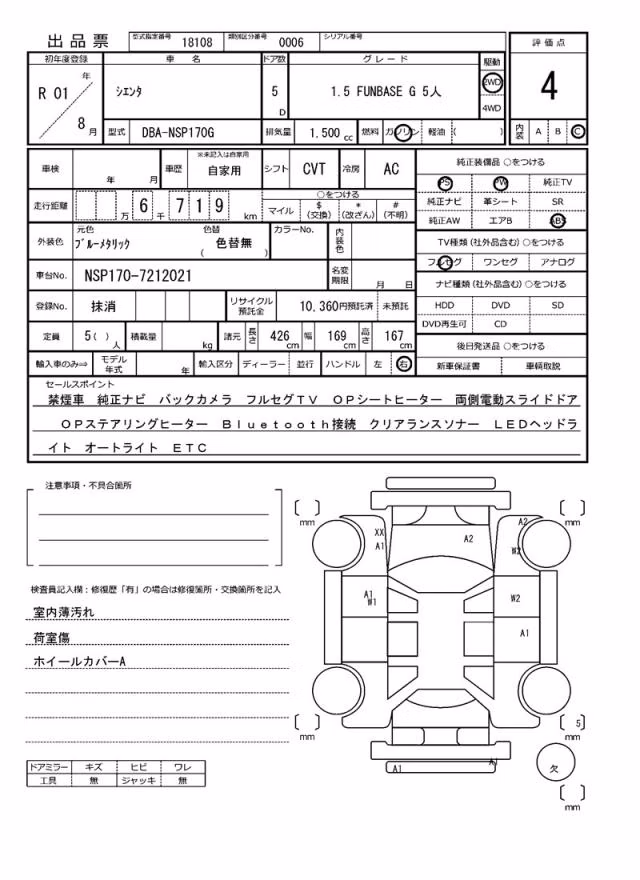 出品票 型式指定番号 18108 類別区分番号 0006 シリアル番号
評価点
4
内装 A B C
初年度登録 車名 ドア数 グレード 駆動
R 01 年 8 月
シエンタ 5 D 1.5 FUNBASE G 5人 2WD
4WD
型式 DBA-NSP170G 排気量 1.500 cc 燃料 ガソリン 軽油 ( )
車検 年 月 車歴 ※未記入は自家用 自家用 シフト CVT 冷房 AC
走行距離 万 6 千 7 1 9 km
○をつける
マイル $(交換) *(改ざん) #(不明)
外装色 元色 ブルーメタリック 色替 ( 色替無 ) カラーNo. 内装色
車台No. NSP170-7212021 名変期限 月 日
登録No. 抹消 リサイクル預託金 10.360円預託済 未預託
定員 5( )人 積載量 kg 諸元 長さ 426cm 幅 169cm 高さ 167cm
輸入車のみ⇨ モデル年式 年 輸入区分 ディーラー 並行 ハンドル 左 右
純正装備品 ○をつける
PS PW 純正TV
純正ナビ 革シート SR
純正AW エアB ABS
TV種類(社外品含む)○をつける
フルセグ ワンセグ アナログ
ナビ種類(社外品含む)○をつける
HDD DVD SD
DVD再生可 CD
後日発送品 ○をつける
新車保証書 車輌取説
セールスポイント
禁煙車 純正ナビ バックカメラ フルセグTV OPシートヒーター 両側電動スライドドア
OPステアリングヒーター Bluetooth接続 クリアランスソナー LEDヘッドラ
イト オートライト ETC
注意事項・不具合箇所
検査員記入欄:修復歴「有」の場合は修復箇所・交換箇所を記入
室内薄汚れ
荷室傷
ホイールカバーA
ドアミラー キズ ヒビ ワレ
工具 無 ジャッキ 無
[ ] mm
[ ] mm
XX
A1
A2
A2
W2
A1
W1
W2
A1
[ ] mm
[ 5 ] mm
A1
A1
欠
[ ] mm